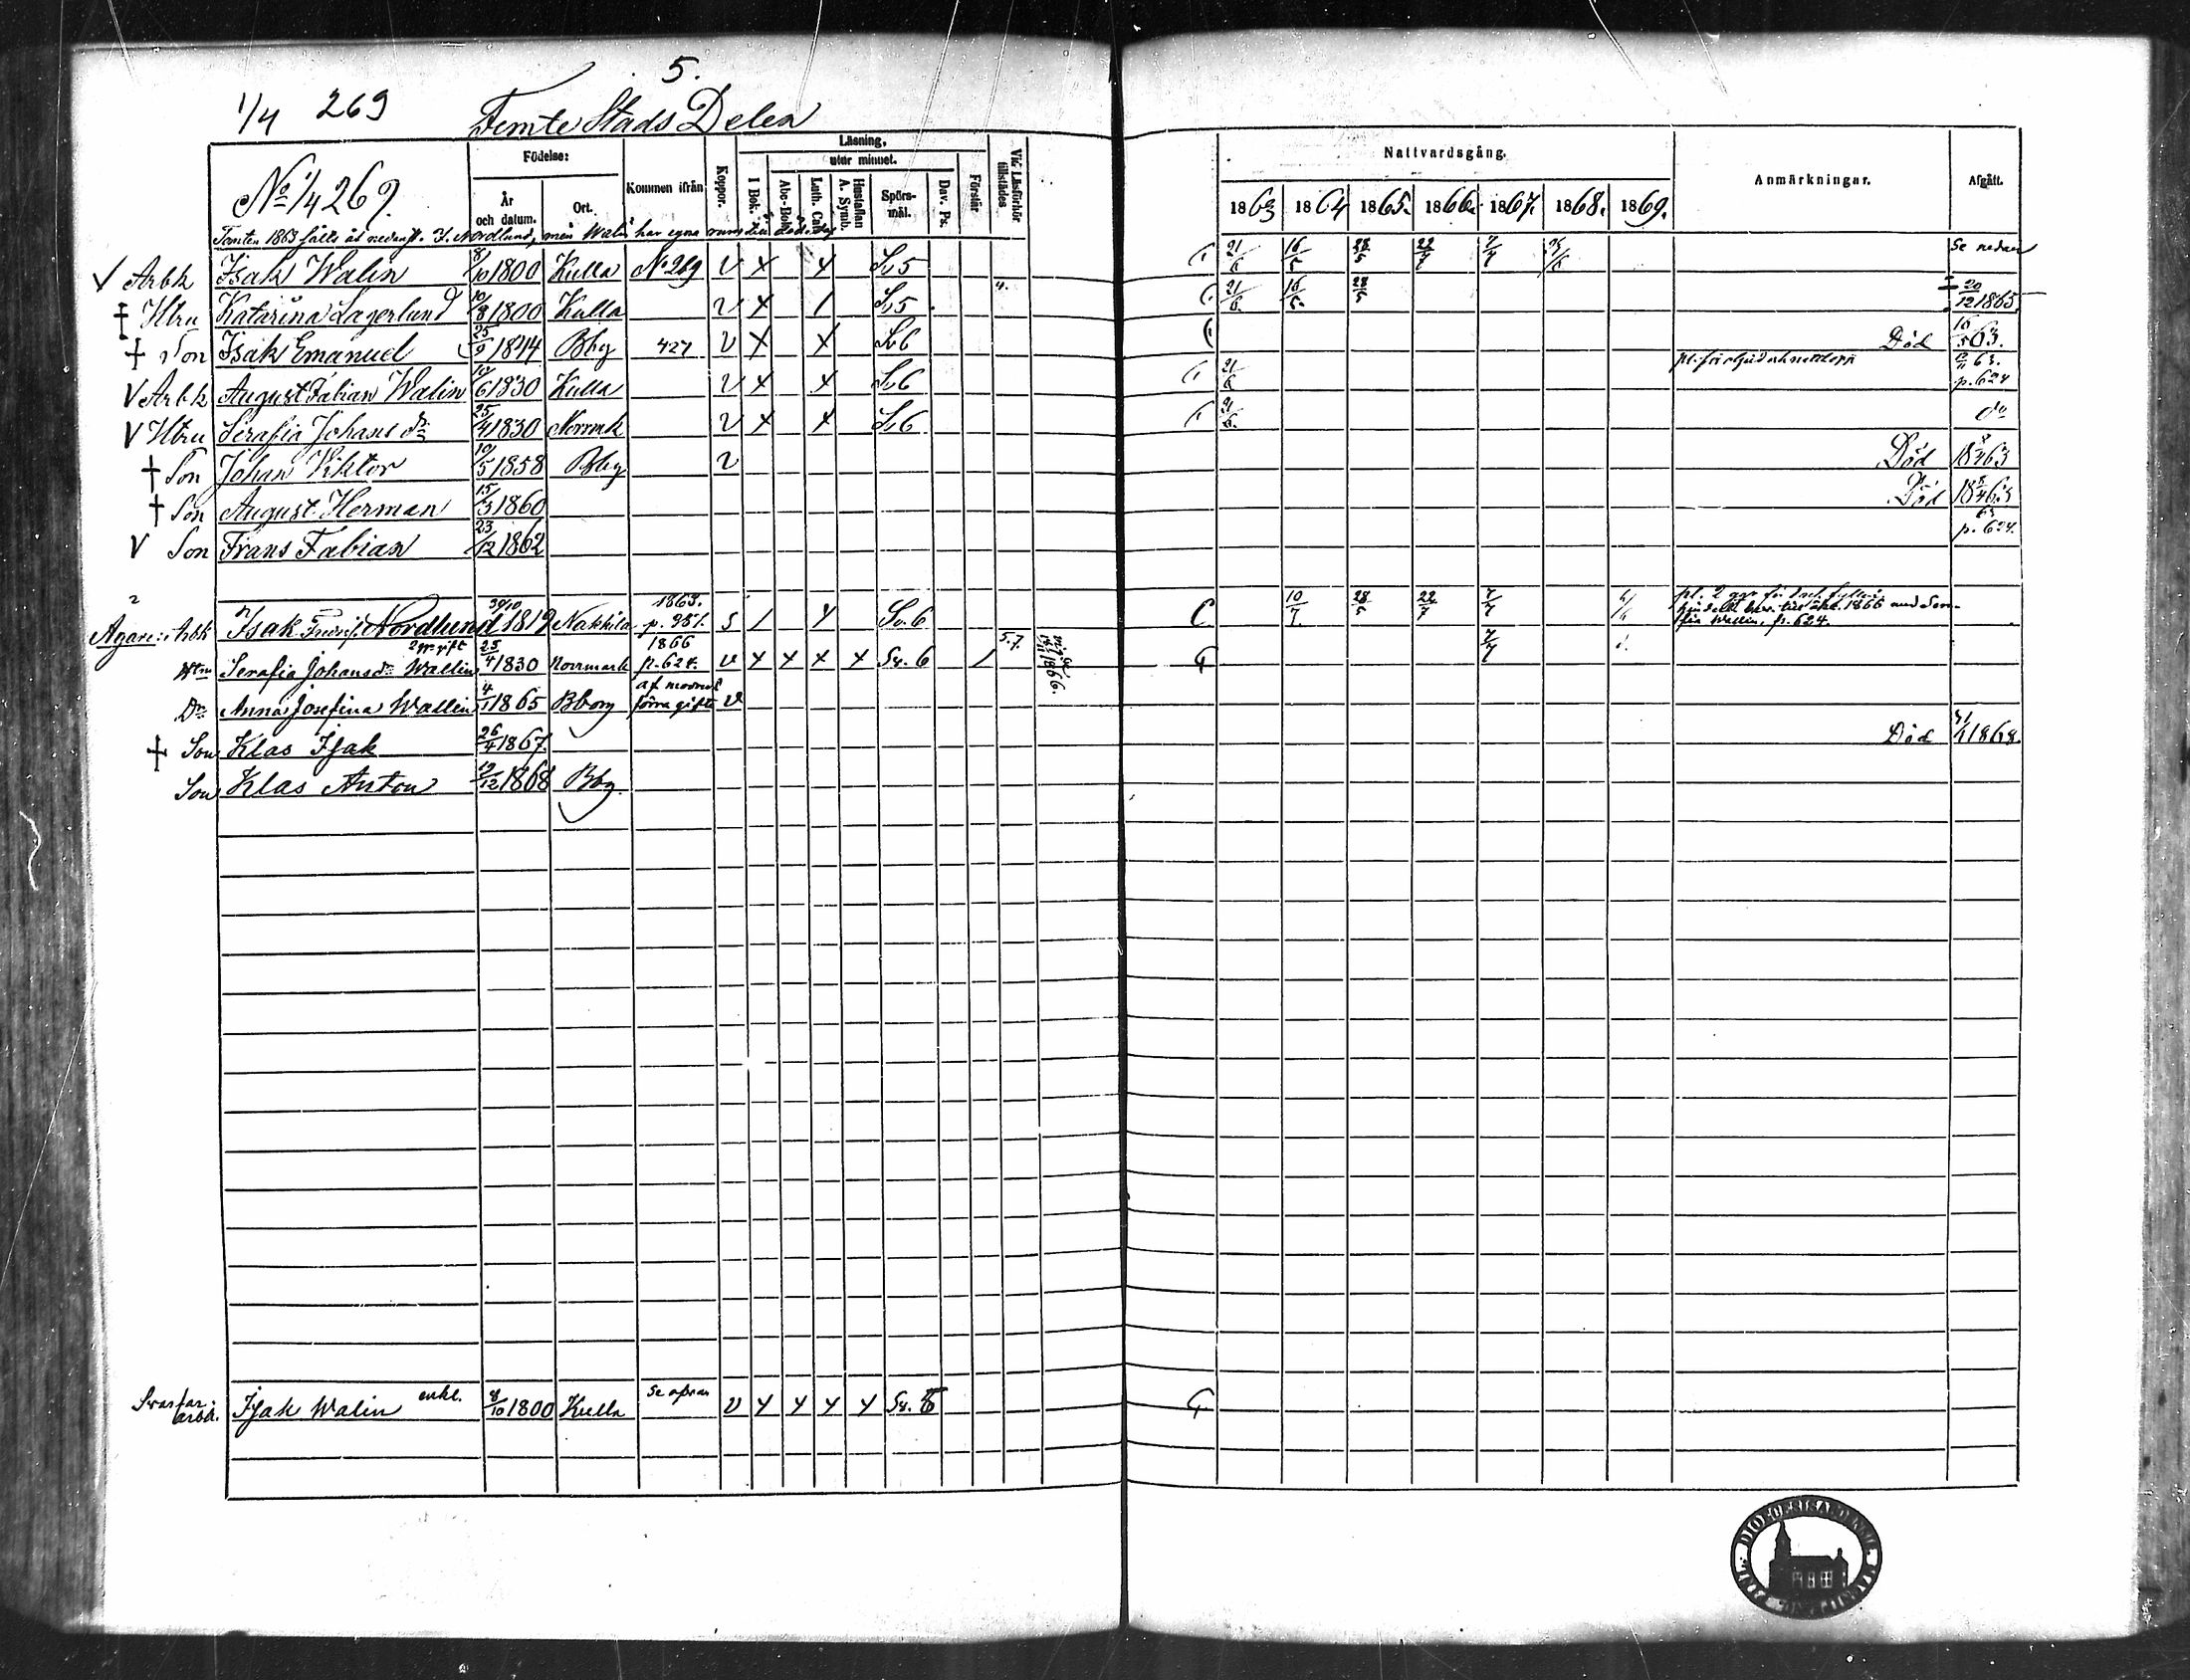 5.
1/4 269 Femte Stads Delen
No 1/4 269.
Födelse:
År och datum.
Ort.
Kommen ifrån
Koppor.
Läsning,
utur minnet.
I Bok.
Abc-Bok
Luth. Cat.
Hustaflan A. Symb.
Spörs-mål.
Dav. Ps.
Förstår
Vid Läsförhör tillstädes
Nattvardsgång.
1863 1864 1865. 1866. 1867. 1868. 1869.
Anmärkningar.
Afgått.
Tomten 1863 såld åt nedanst. I. Nordlund, men Walin har egna rum
V Arbk Isak Walin 8/10 1800 Kulla No 269 V X X Sv 5 21/6 16/5 28/5 22/7 7/7 Se nedan
‡ Htru Katarina Lagerlund 10/8 1800 Kulla V X 1 Sv 5 4. 21/6. 16/5. 28/5 ‡ 20/12 1865
† Son Isak Emanuel 25/9 1844 Bbg 427 V X X Sv 6 Död 16/5 63.
V Arbk August Fabian Walin 10/6 1830 Kulla V X X Sv 6 21/6 63. p. 624
V Htru Serafia Johansdr 25/4 1830 Norrmk V X X Sv 6 21/6. do
† Son Johan Viktor 10/5 1858 Bbg V Död 18 8/4 63
† Son August Herman 15/3 1860 Död 18 8/4 63
V Son Frans Fabian 23/12 1862 63 p. 624.
Ägare: Arbk Isak Fredrik Nordlund 30/10 1819 Nakkila 1863. p. 951. S 1 X Sv. 6 C 10/7. 28/5 22/7 7/7 pl. 2 ggr för
1866 med Sera-
fia Wallin, p. 624.
Htru Serafia Johansdr Wallin 2 gr gift 25/4 1830 Norrmark 1866 p. 624. V X X X X Sv. 6 1 5.7. 1866. G 7/7
Dr Anna Josefina Wallin 4/1 1865 Bborg af modrens förra gifte V
† Son Klas Isak 26/4 1867 Död 1868.
Son Klas Anton 19/12 1868 Bbg.
Svärfar: arbk. Isak Walin enkl. 8/10 1800 Kulla Se ofvan V X X X X Sv. 5 G